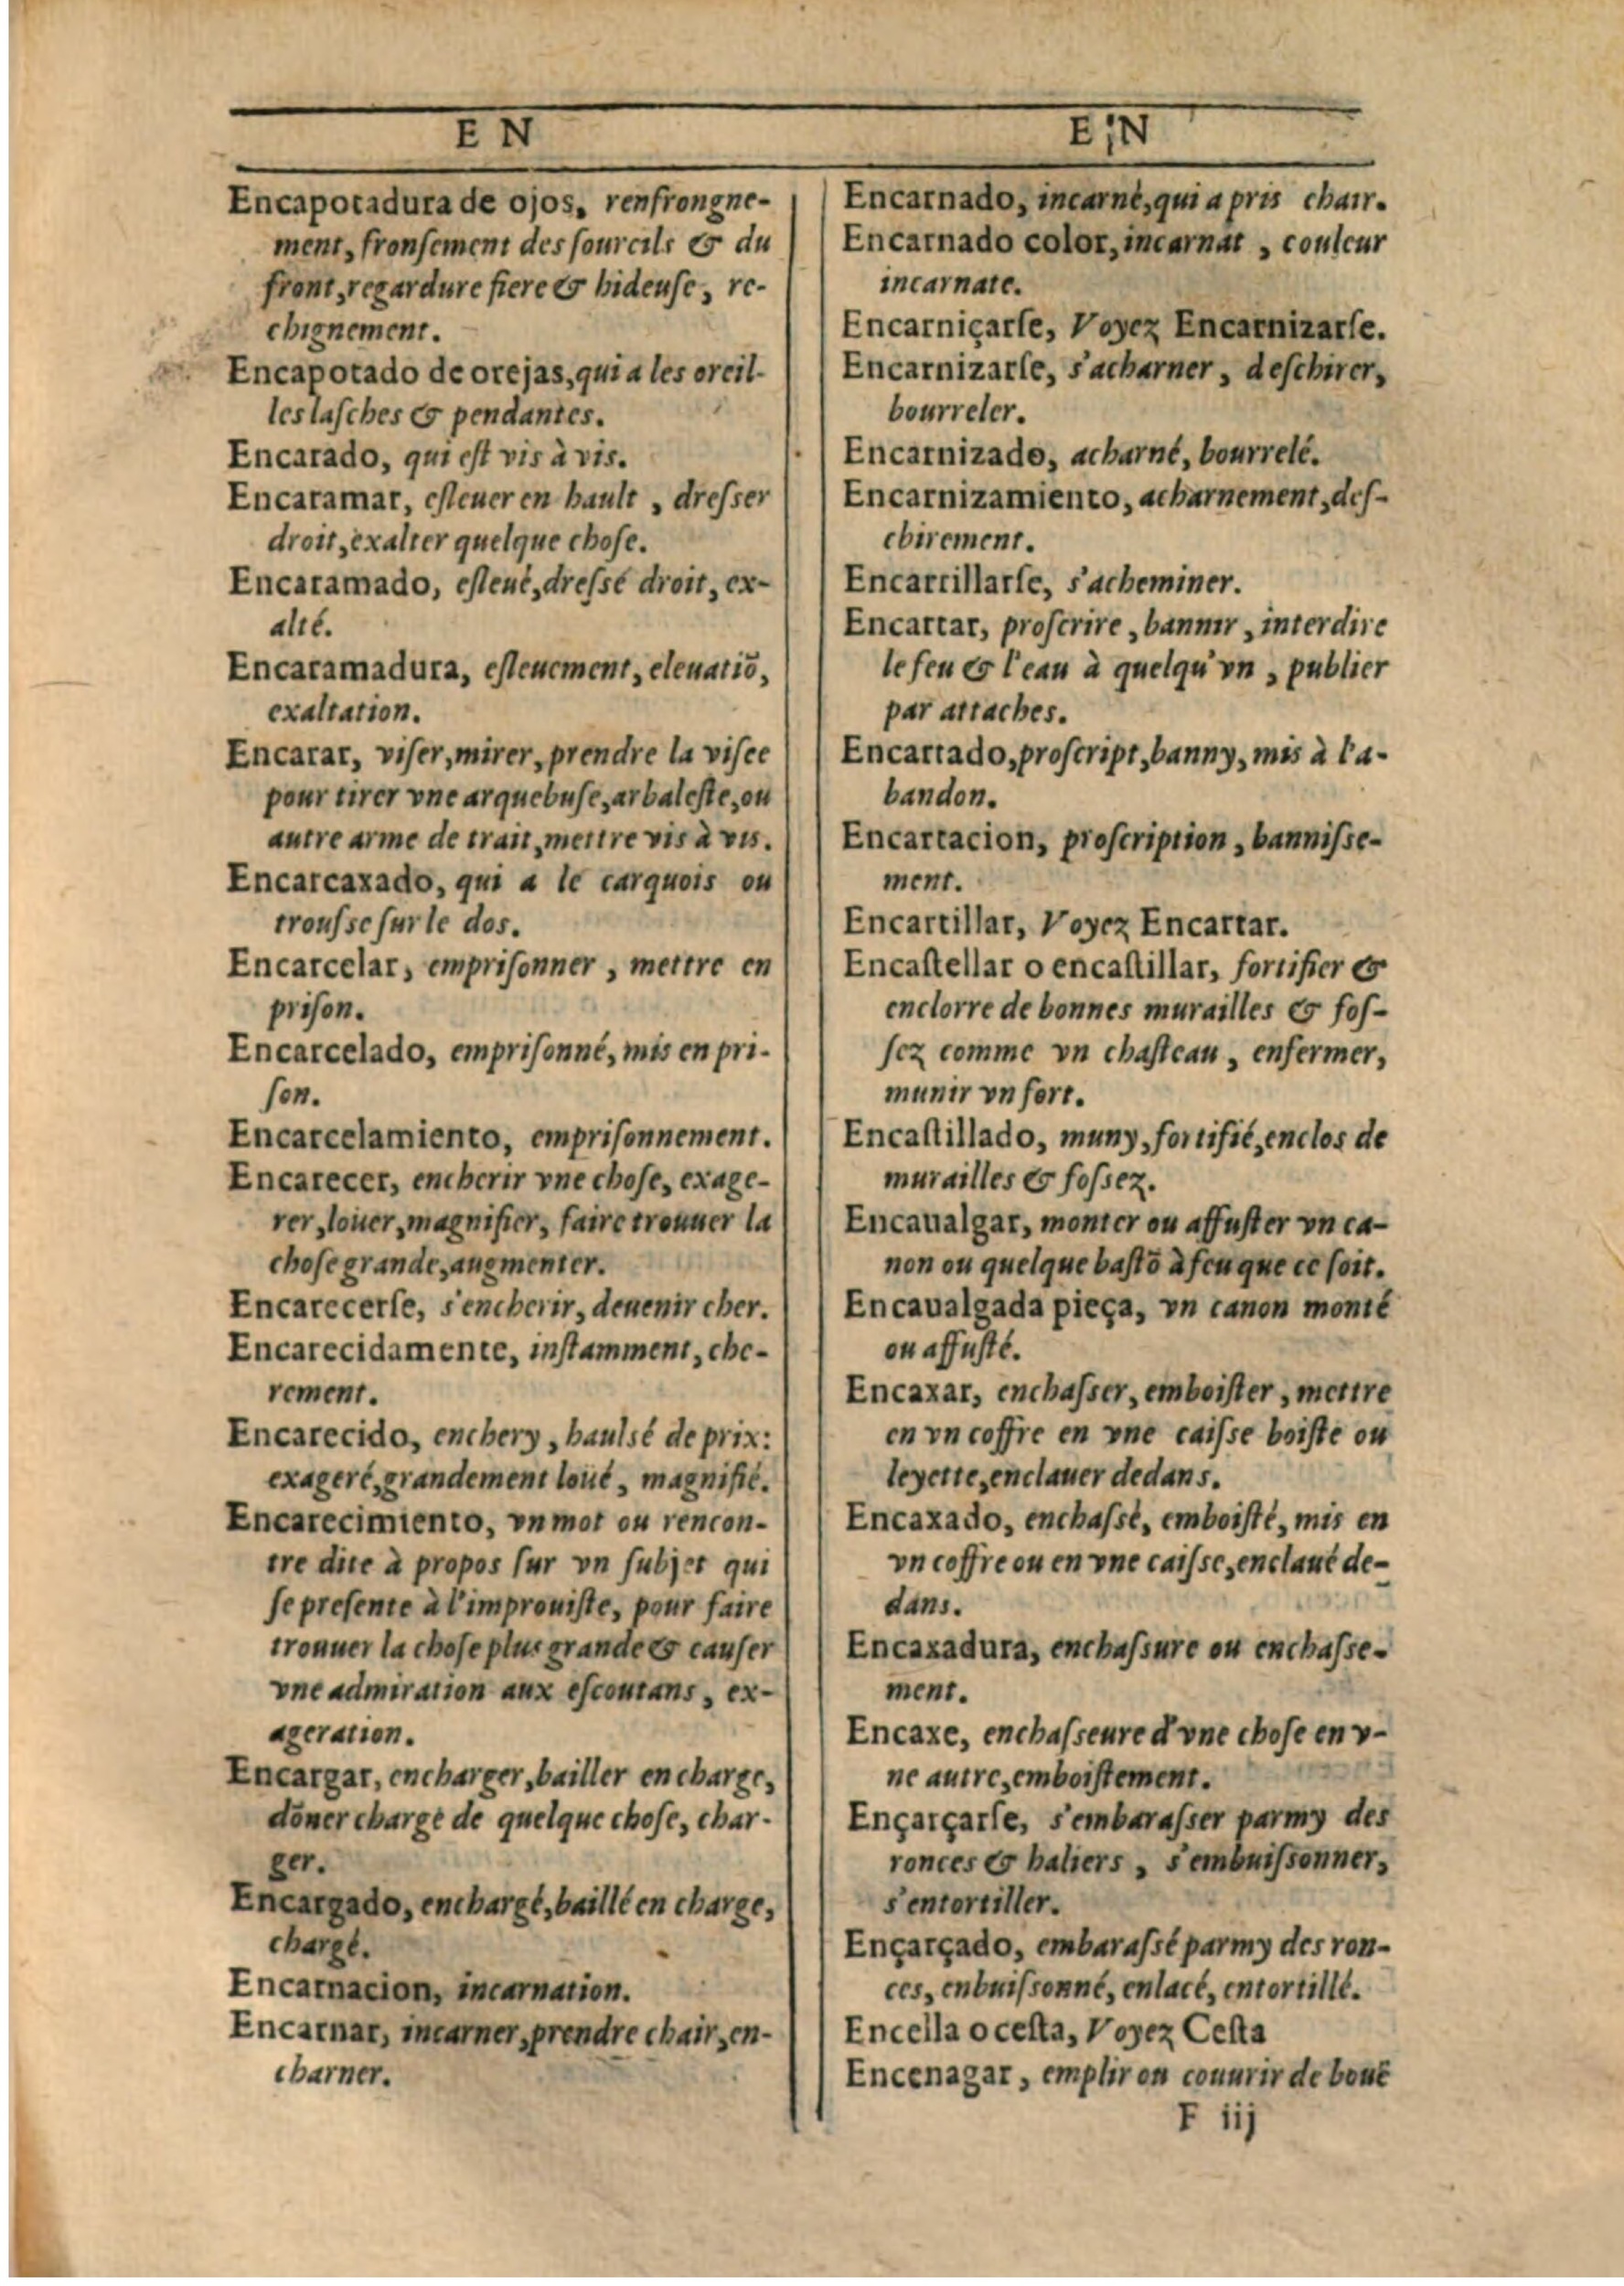 E N
Encapotadura de ojos, renfrongne-
ment, fronſement des ſourcils & du
front, regardure fiere & hideuſe, re-
chignement.
Encapotado de orejas, qui a les oreil-
les laſches & pendantes.
Encarado, qui eſt vis à vis.
Encaramar, eſleuer en hault, dreſſer
droit, exalter quelque choſe.
Encaramado, eſleué, dreſſé droit, ex-
alté.
Encaramadura, eſleuement, eleuatiõ,
exaltation.
Encarar, viſer, mirer, prendre la viſee
pour tirer vne arquebuſe, arbaleſte, ou
autre arme de trait, mettre vis à vis.
Encarcaxado, qui a le carquois ou
trouſſe ſur le dos.
Encarcelar, empriſonner, mettre en
priſon.
Encarcelado, empriſonné, mis en pri-
ſon.
Encarcelamiento, empriſonnement.
Encarecer, encherir vne choſe, exage-
rer, loüer, magnifier, faire trouuer la
choſe grande, augmenter.
Encarecerſe, s'encherir, deuenir cher.
Encarecidamente, inſtamment, che-
rement.
Encarecido, enchery, haulsé de prix:
exageré, grandement loüé, magnifié.
Encarecimiento, vn mot ou rencon-
tre dite à propos ſur vn ſubjet qui
ſe preſente à l'improuiſte, pour faire
trouuer la choſe plus grande & cauſer
vne admiration aux eſcoutans, ex-
ageration.
Encargar, encharger, bailler en charge,
dõner charge de quelque choſe, char-
ger.
Encargado, enchargé, baillé en charge,
chargé.
Encarnacion, incarnation.
Encarnar, incarner, prendre chair, en-
charner.
E N
Encarnado, incarné, qui a pris chair.
Encarnado color, incarnat, couleur
incarnate.
Encarniçarſe, Voyez Encarnizarſe.
Encarnizarſe, s'acharner, deſchirer,
bourreler.
Encarnizado, acharné, bourrelé.
Encarnizamiento, acharnement, deſ-
chirement.
Encarrillarſe, s'acheminer.
Encartar, proſcrire, bannir, interdire
le feu & l'eau à quelqu'vn, publier
par attaches.
Encartado, proſcript, banny, mis à l'a-
bandon.
Encartacion, proſcription, banniſſe-
ment.
Encartillar, Voyez Encartar.
Encaſtellar o encaſtillar, fortifier &
enclorre de bonnes murailles & foſ-
ſez comme vn chaſteau, enfermer,
munir vn fort.
Encaſtillado, muny, fortifié, enclos de
murailles & foſſez.
Encaualgar, monter ou affuſter vn ca-
non ou quelque baſtõ à feu que ce ſoit.
Encaualgada pieça, vn canon monté
ou affuſté.
Encaxar, enchaſſer, emboiſter, mettre
en vn coffre en vne caiſſe boiſte ou
leyette, enclauer dedans.
Encaxado, enchaſſé, emboiſté, mis en
vn coffre ou en vne caiſſe, enclaué de-
dans.
Encaxadura, enchaſſure ou enchaſſe-
ment.
Encaxe, enchaſſeure d'vne choſe en v-
ne autre, emboiſtement.
Ençarçarſe, s'embaraſſer parmy des
ronces & haliers, s'embuiſſonner,
s'entortiller.
Ençarçado, embaraſſé parmy des ron-
ces, enbuiſſonné, enlacé, entortillé.
Encella o ceſta, Voyez Ceſta
Encenagar, emplir ou couurir de bouë
F iij